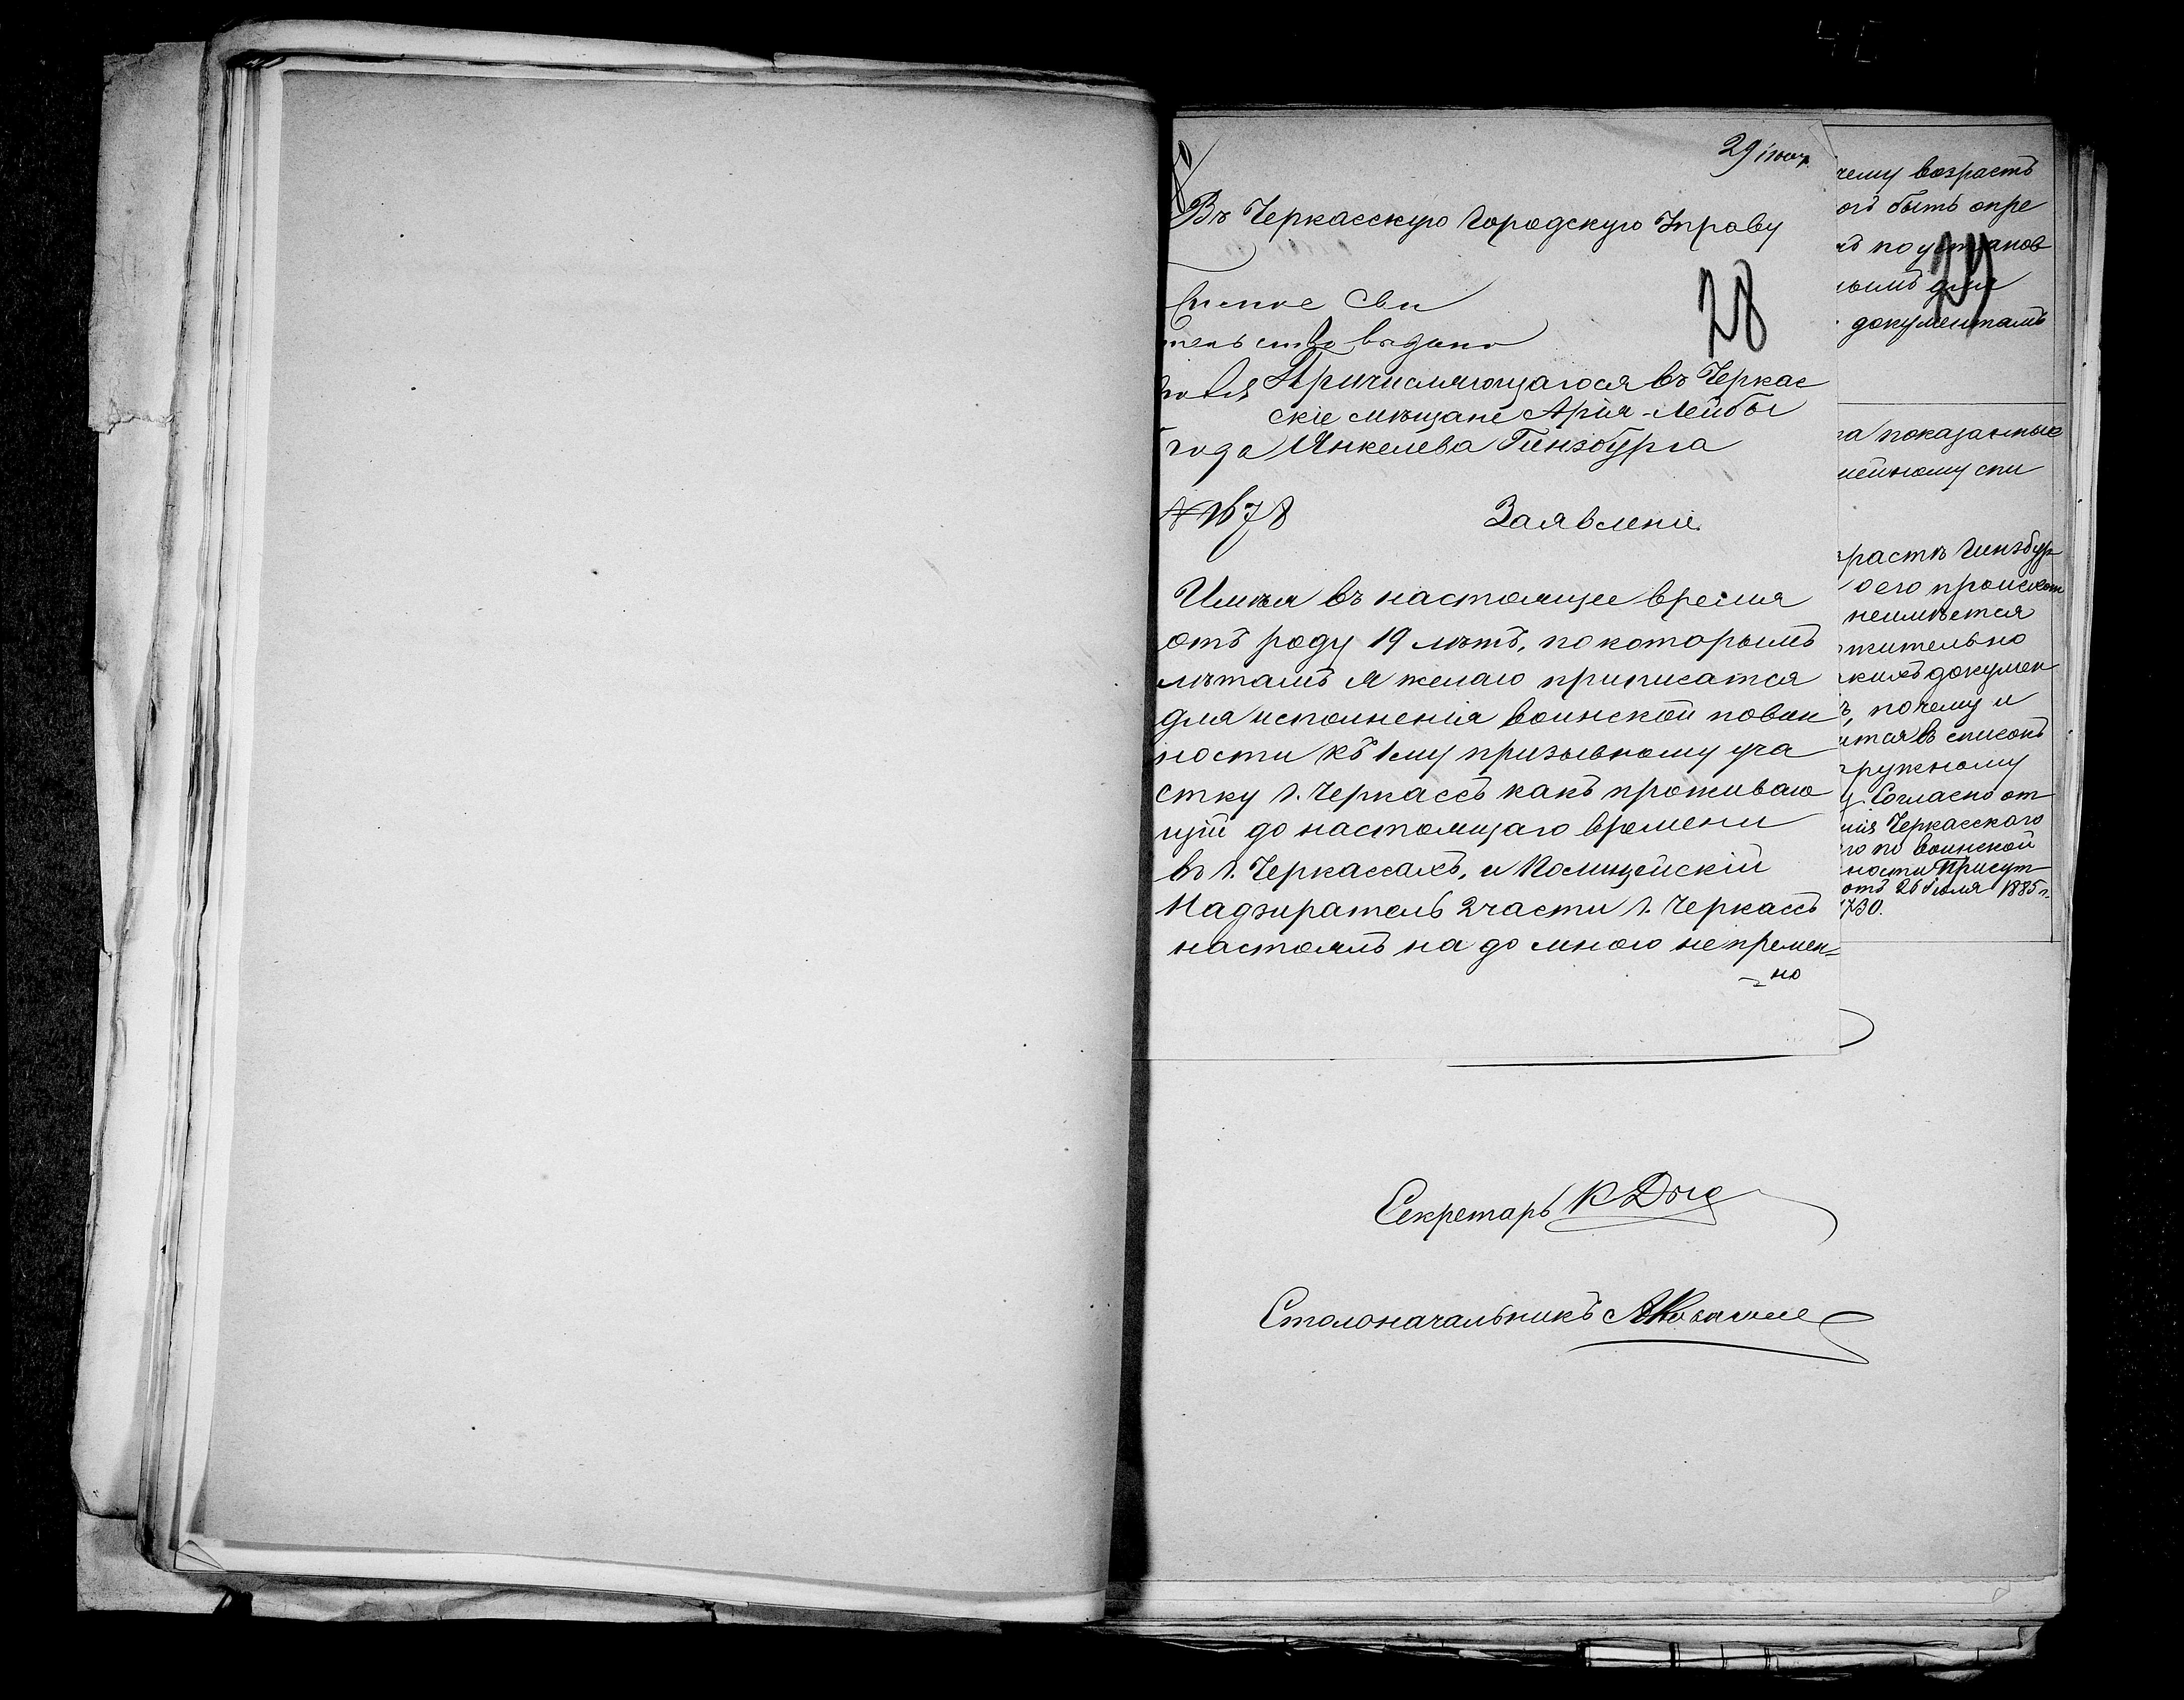 29 іюля
Въ Черкасскую Городскую Управу
28
тельство выдано
Причисляющагося въ Черкас
скіе мѣщане Арія-Лейбы
года Янкелева Гинзбурга
№ 1678
Заявленіе
Имѣя въ настоящее время
отъ роду 19 лѣтъ, по которымъ
лѣтамъ я желаю приписатся
для исполненія воинской повин
ности къ 1му призывному уча
стку г. Черкассъ какъ проживаю
щій до настоящаго времени
въ г. Черкассахъ, и Полицейскій
Надзиратель 2 части г. Черкассъ
настоялъ на до мною непремен=
но
чему возрастъ
огъ быть опре
по установ
нымъ для
документамъ
29
на показанные
мейному спи
зрастѣ Гинзбур
о его происхож
неимѣется
жительно
кихъ докумен
ъ, почему и
ится въ списокъ
кружному
Согласно от
нія Черкасскаго
го по воинской
ности Присут
отъ 26 Іюля 1885 г.
730.
Секретарь К
Столоначальникъ